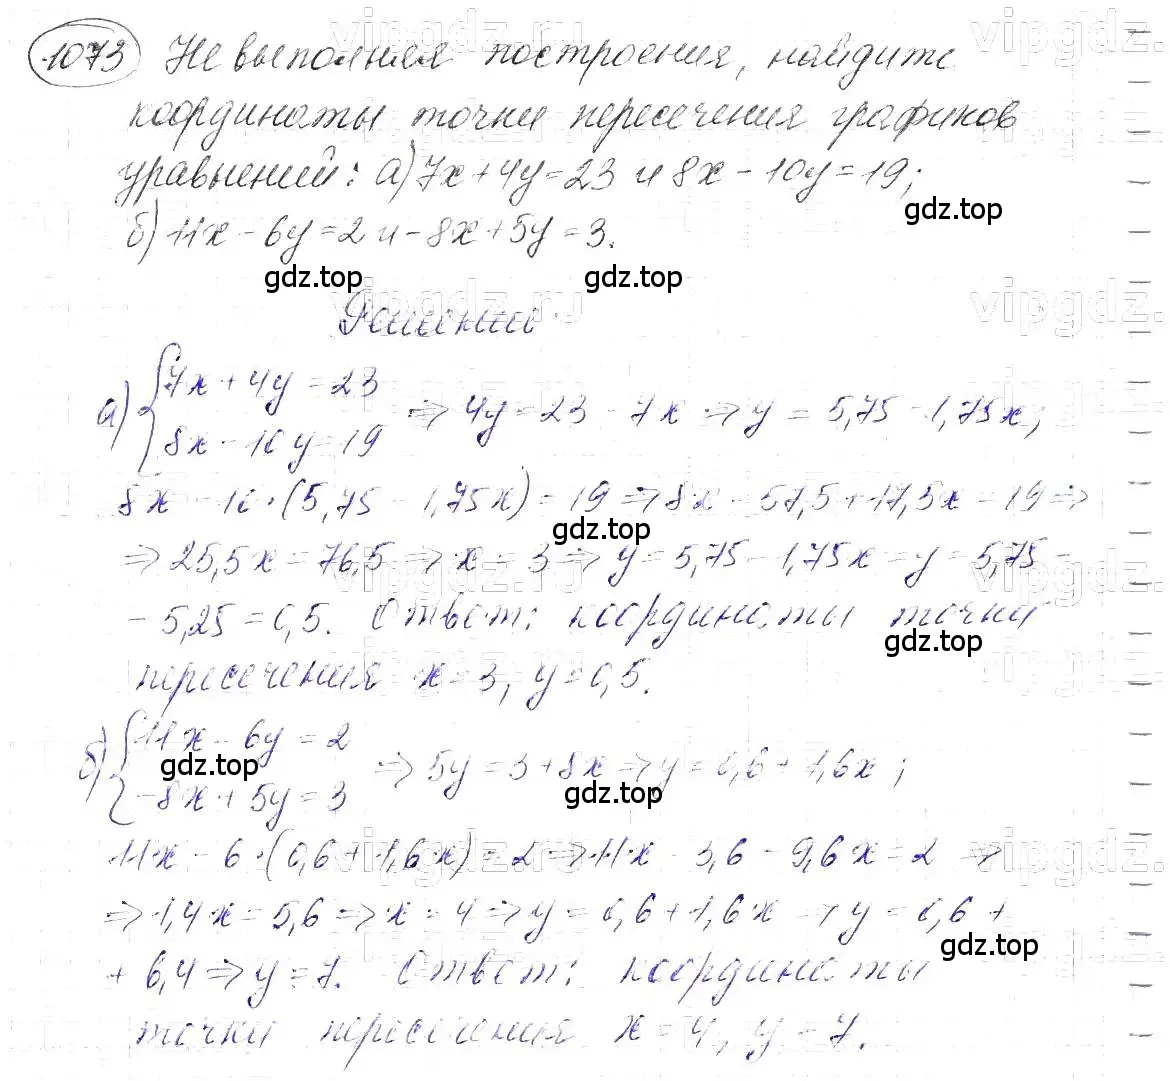 1073 Не выполняя построения, найдите
координаты точки пересечения графиков
уравнений: а) 7x + 4y = 23 и 8x - 10y = 19;
gdz.top
б) 11x - 6y = 2 и -8x + 5y = 3.
gdz.top gdz.top
Решение
а) { 7x + 4y = 23
8x - 10y = 19 => 4y = 23 - 7x => y = 5,75 - 1,75x;
8x - 10·(5,75 - 1,75x) = 19 => 8x - 57,5 + 17,5x = 19 =>
gdz.top
=> 25,5x = 76,5 => x = 3 => y = 5,75 - 1,75x = y = 5,75 -
- 5,25 = 0,5. Ответ: координаты точки
gdz.top
пересечения x = 3, y = 0,5.
б) { 11x - 6y = 2
gdz.top
-8x + 5y = 3 => 5y = 3 + 8x => y = 0,6 + 1,6x;
gdz.top
11x - 6·(0,6 + 1,6x) = 2 => 11x - 3,6 - 9,6x = 2 =>
=> 1,4x = 5,6 => x = 4 => y = 0,6 + 1,6x => y = 0,6 +
gdz.top
+ 6,4 => y = 7. Ответ: координаты
точки пересечения x = 4, y = 7.
vipgdz.ru